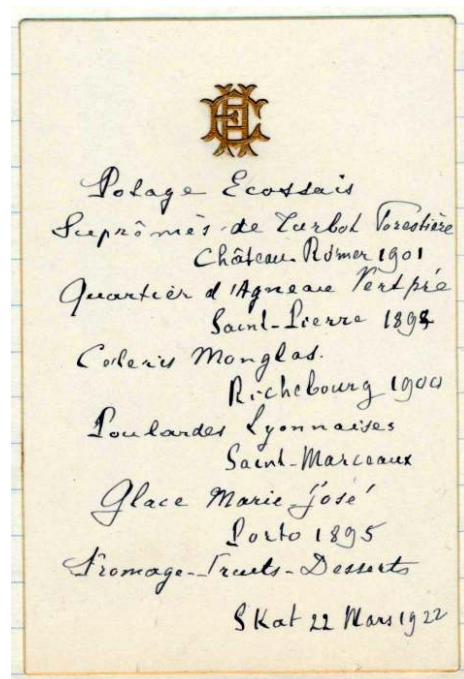 Potage Ecossais
Suprêmes de Turbot Forestière
Château Rómer 1901
Quartier d'Agneau Vert pré
Saint-Pierre 189
Monglas.
Richebourg 1900
Poulardes Lyonnaises
Saint-Marceaux
Glace Marie-José
Porto 1895
Fromage-Fruits-Desserts
Skat 22 Mars 1922